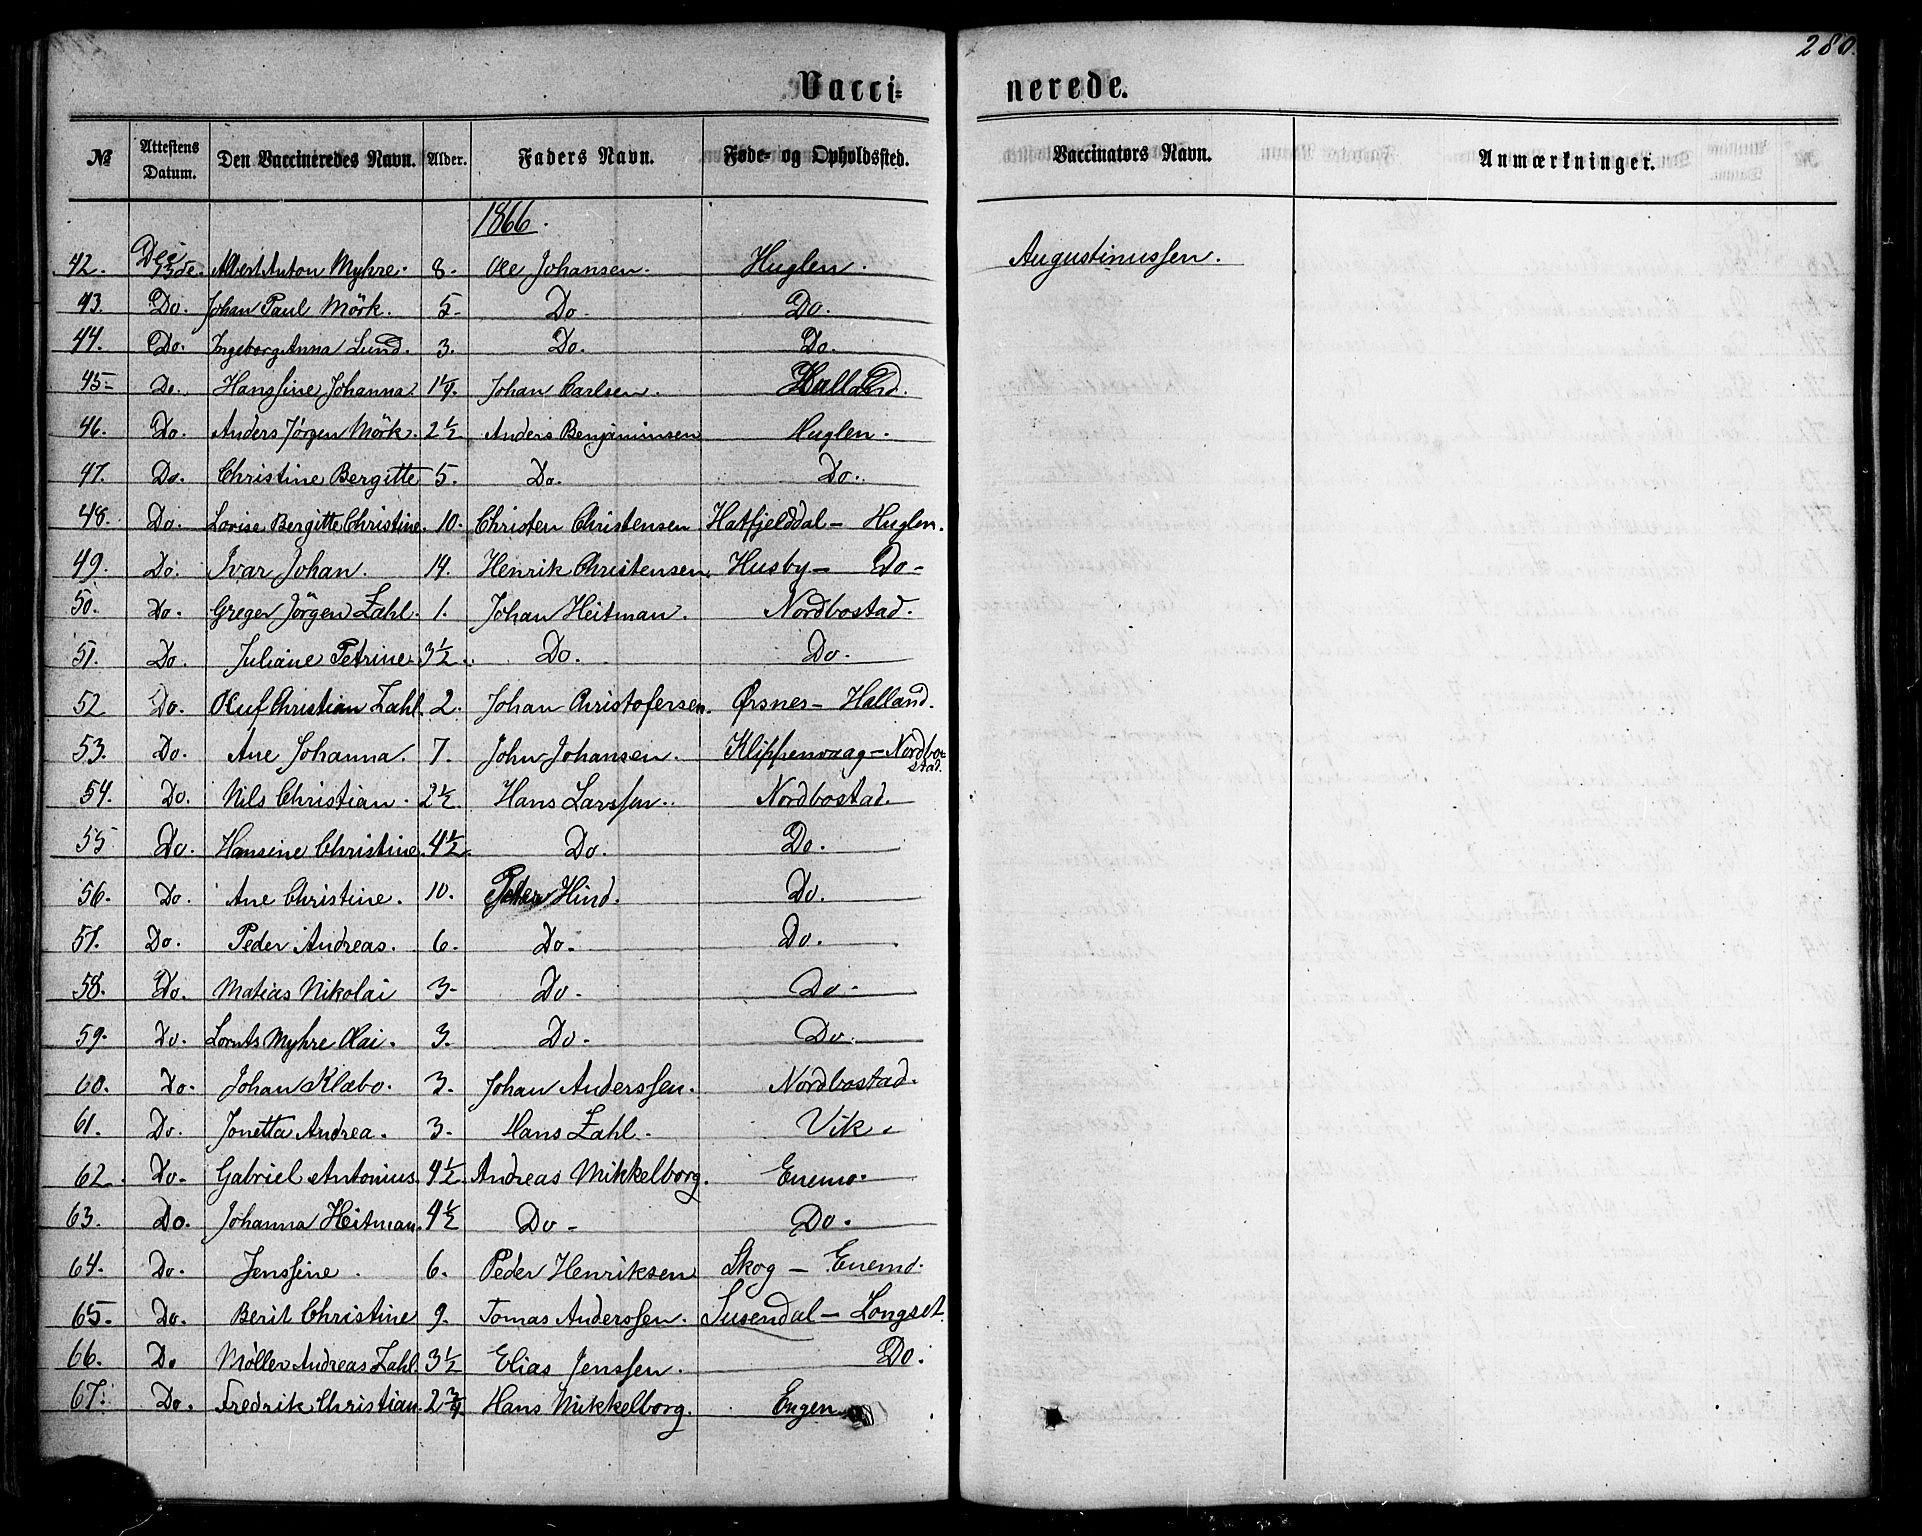 280.
Vacci= nerede.
№ | Attestens Datum. | Den Vaccineredes Navn. | Alder. | Faders Navn. | Føde- og Opholdssted. | Vaccinators Navn. | Anmærkninger.
1866.
42. | Dec 13de. | Albert Anton Myhre. | 8. | Ole Johansen. | Huglen. | Augustinussen.
43. | Do. | Johan Paul Mörk. | 5. | Do. | Do.
44. | Do. | Ingeborg Anna Lund. | 3. | Do. | Do.
45 | Do. | Hanssine Johanna. | 1 1/4. | Johan Carlsen. | Halland.
46. | Do. | Anders Jörgen Mörk. | 2 1/2 | Anders Benjaminsen | Huglen.
47. | Do. | Christine Bergitte | 5. | Do. | Do.
48. | Do. | Lovise Bergitte Christine. | 10. | Christen Christensen | Hatfjelddal - Huglen.
49. | Do. | Ivar Johan. | 14. | Henrik Christensen. | Husby - Do-
50. | Do. | Greger Jörgen Zahl. | 1. | Johan Heitman. | Nordbostad.
51. | Do. | Juliane Petrine. | 3 1/2. | Do. | Do.
52 | Do. | Oluf Christian Zahl. | 2. | Johan Christofersen. | Ørsnes - Halland.
53. | Do. | Ane Johanna. | 7. | John Johansen. | Klippenvaag - Nordbo-
stad.
54. | Do. | Nils Christian. | 2 1/2 | Hans Larssen. | Nordbostad.
55 | Do. | Hansine Christine. | 4 1/2. | Do. | Do.
56. | Do. | Ane Christine. | 10. | Peter Hind. | Do.
57. | Do. | Peder Andreas. | 6. | Do. | Do.
58. | Do. | Matias Nikolai | 3- | Do- | Do-
59. | Do. | Lornts Myhre Olai. | 3. | Do- | Do.
60. | Do. | Johan Klæbo. | 3. | Johan Anderssen. | Nordbostad.
61. | Do. | Jonetta Andrea. | 3. | Hans Zahl. | Vik.
62. | Do. | Gabriel Antonius. | 4 1/2. | Andreas Mikkelborg. | Enemo.
63. | Do. | Johanna Heitman. | 4 1/2 | Do- | Do.
64. | Do. | Jenssine. | 6. | Peder Henriksen | Skog - Enemo.
65. | Do. | Berit Christine | 9. | Tomas Anderssen. | Susendal - Longset
66. | Do | Møller Andreas Zahl. | 3 1/2 | Elias Jenssen. | Do.
67. | Do. | Fredrik Christian. | 2 3/4. | Hans Mikkelborg. | Engen